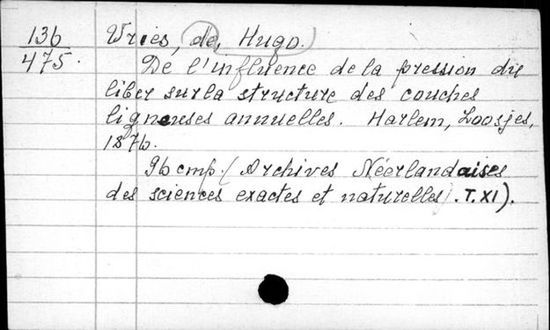 136
475.
Vries, de, Hugo.
De l'influence de la pression du
liber sur la structure des couches
ligneuses annuelles. Harlem, Loosjes,
1876.
96 стр. (Archives Néerlandaises
des sciences exactes et naturelles). T. XI).